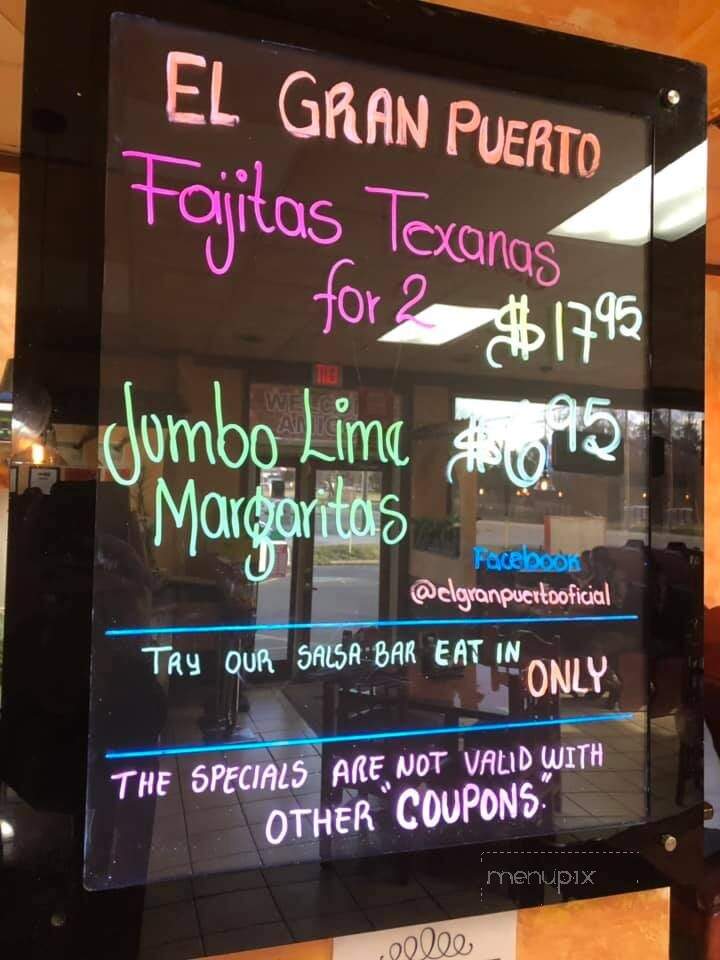 EL GRAN PUERTO
Fajitas Texanas
for 2 $17.95
Jumbo Lime $6.95
Margaritas
Facebook
@elgranpuertooficial
TRY OUR SALSA BAR EAT IN ONLY
THE SPECIALS ARE NOT VALID WITH
OTHER "COUPONS".
menupix